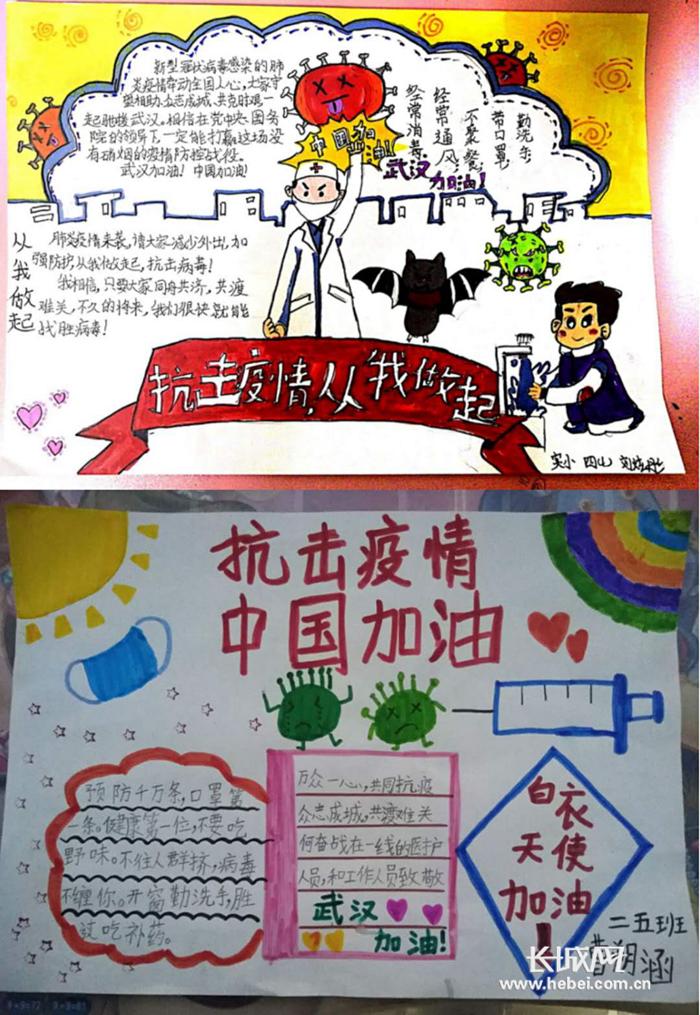 新型冠状病毒感染的肺
炎疫情牵动全国人心,大家守
望相助,众志成城,共克时艰一
起驰援武汉。相信在党中央、国务
院的领导下,一定能打赢这场没
有硝烟的疫情防控战役。
武汉加油!中国加油!
中国加油!
武汉加油!
勤洗手
带口罩
不聚餐
经常通风
经常消毒
从我做起
肺炎疫情来袭,请大家减少外出,加
强防护从我做起,抗击病毒!
我相信,只要大家同舟共济,共渡
难关,不久的将来,我们很快就能
战胜病毒!
抗击疫情,从我做起
实小 四山
抗击疫情
中国加油
预防千万条,口罩第
一条。健康第一位,不要吃
野味。不住人群挤,病毒
不缠你。开窗勤洗手,胜
过吃补药。
万众一心,共同抗疫
众志成城,共渡难关
向奋战在一线的医护
人员,和工作人员致敬
武汉
加油!
白衣
天使
加油!
二五班
曹朔涵
长城网
www.hebei.com.cn
9×9=72 9×9=81